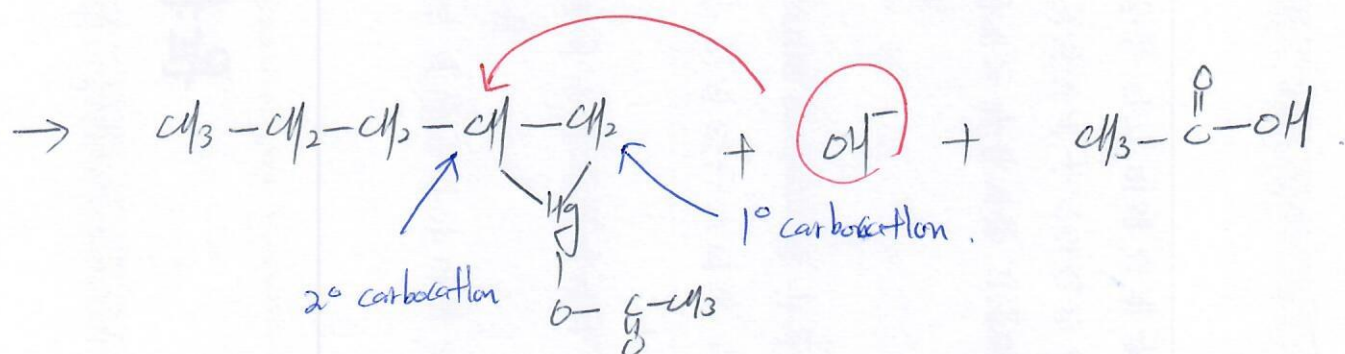 → CH3 — CH2 — CH2 — CH — CH2 + OH⁻ + CH3 — C — OH
O
Hg
1° carbocation.
2° carbocation
O — C — CH3
O